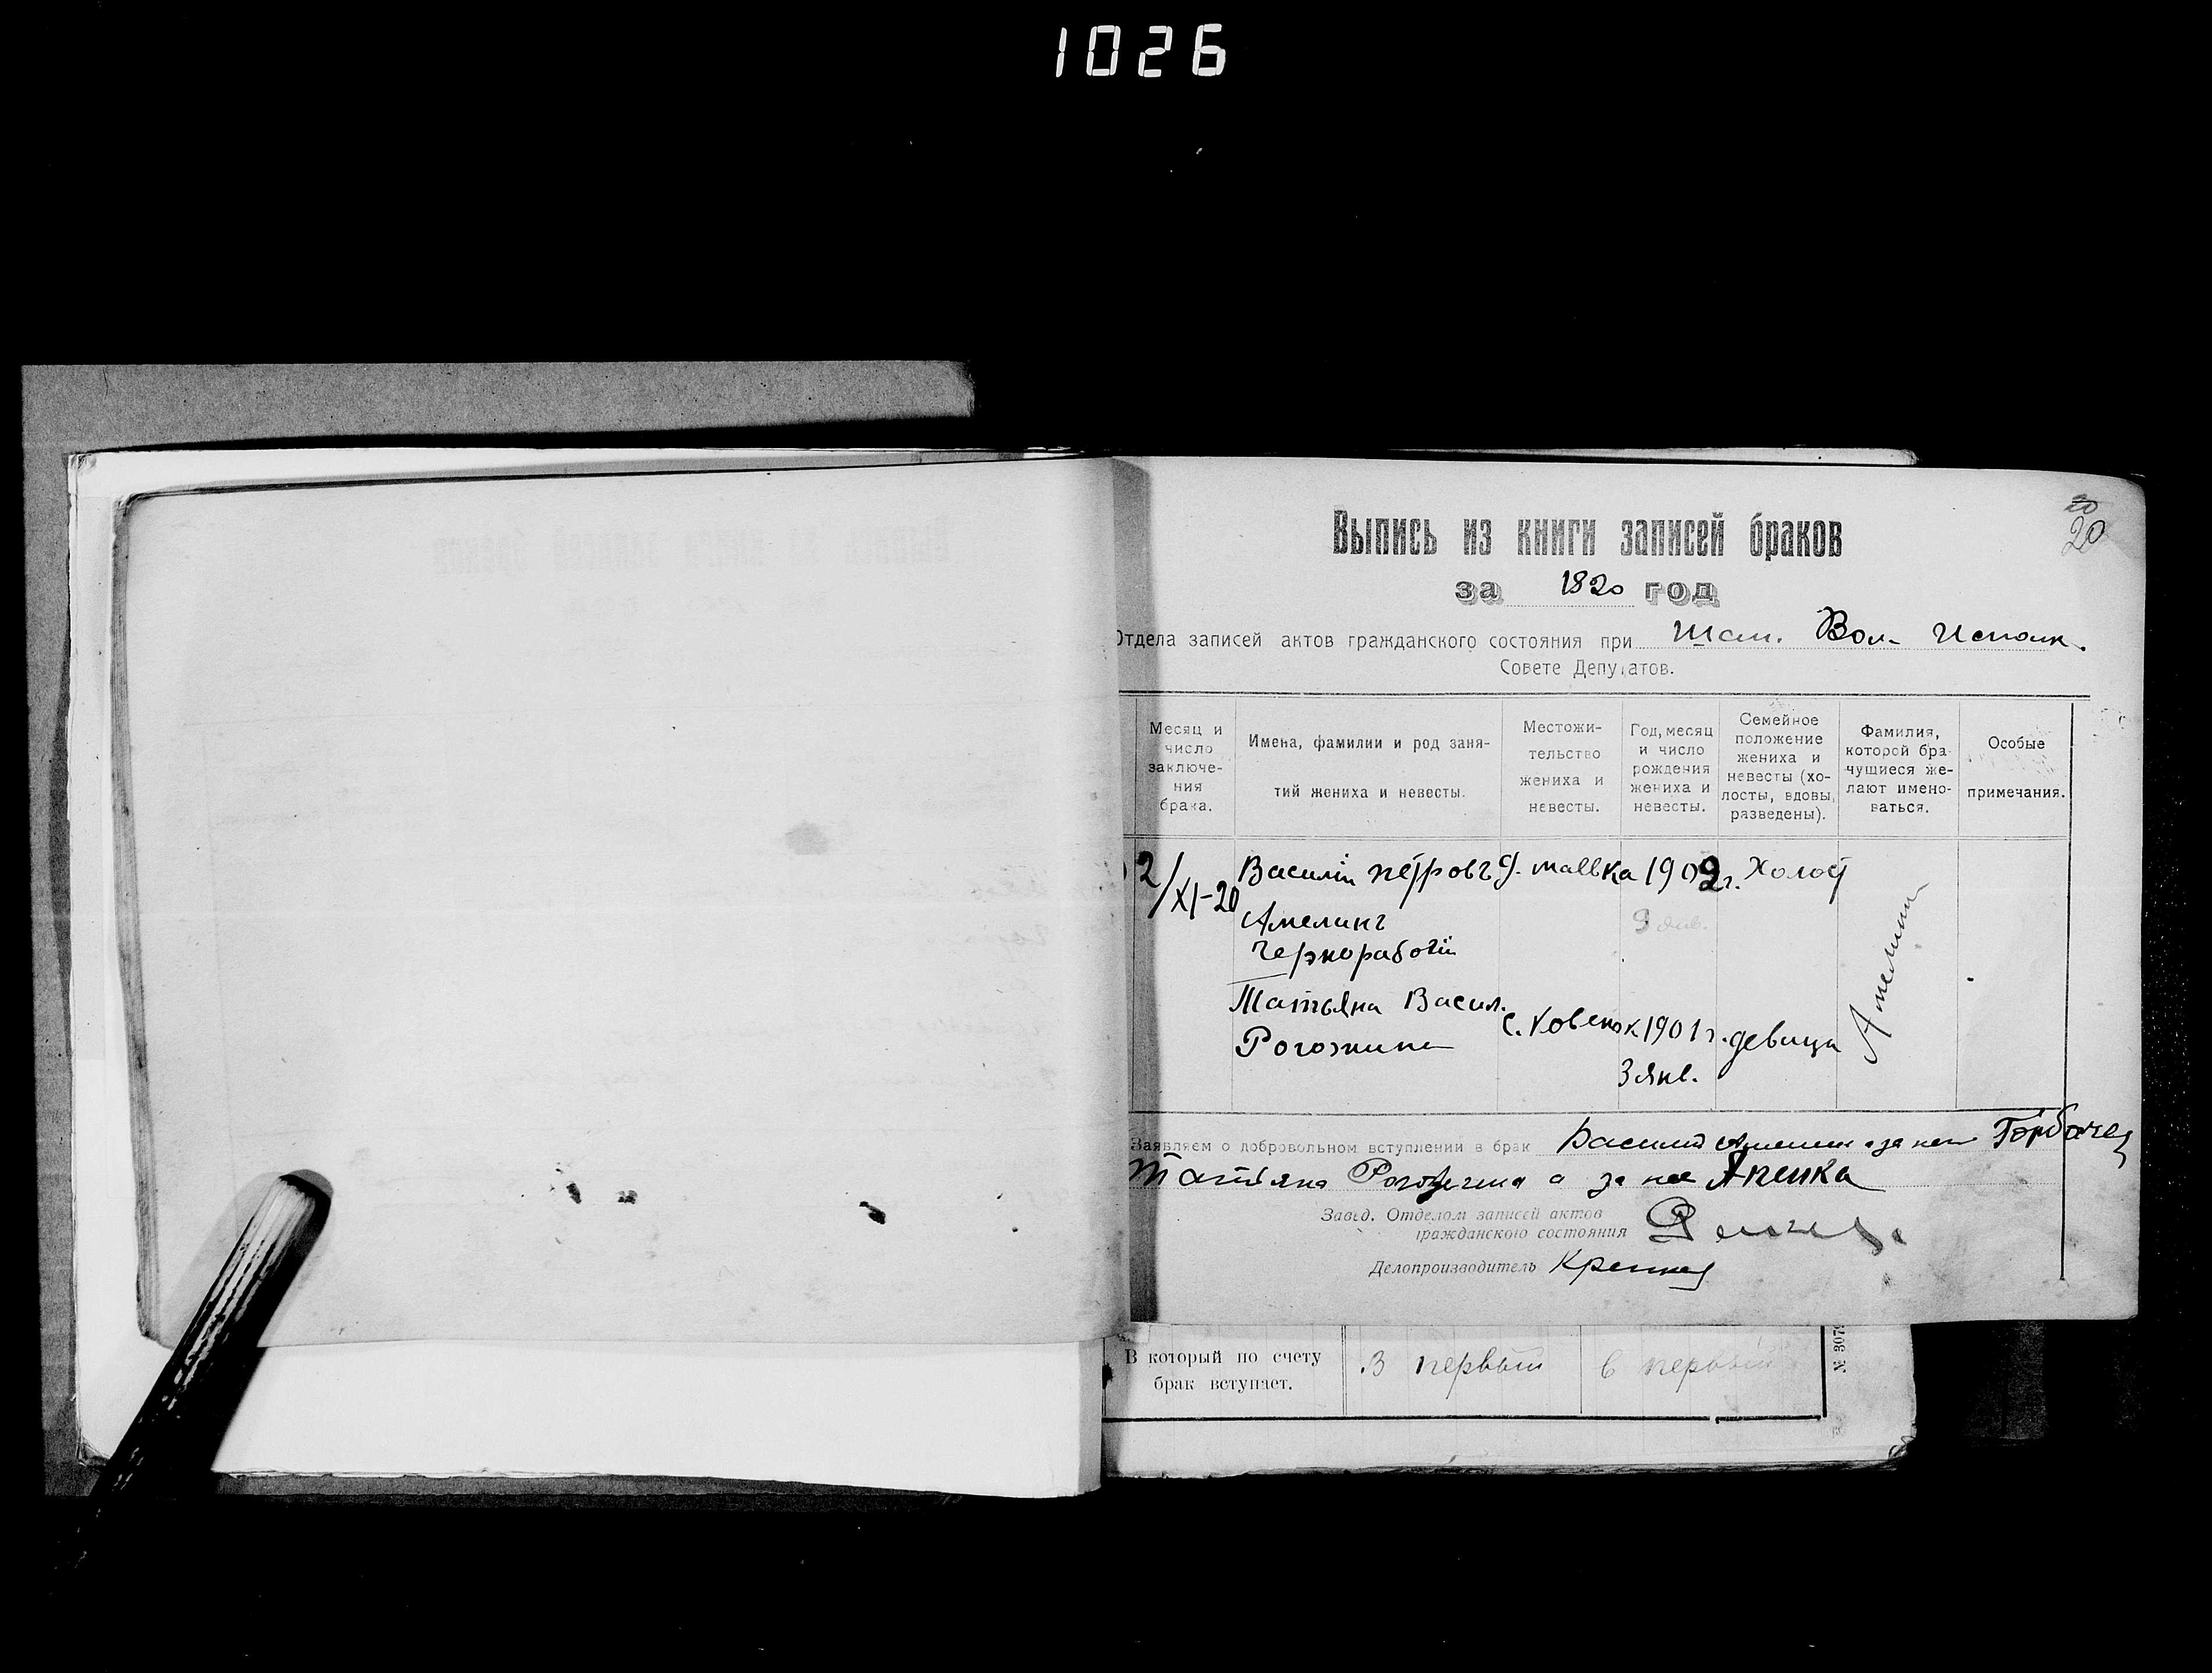 1026
20
20
Выпись из книги записей браков
за 1820 год
Отдела записей актов гражданского состояния при Шам. Вол. Исполк.
Совете Депутатов.
Месяц и число заключе-ния брака.
Имена, фамилии и род заня-тий жениха и невесты.
Местожи-тельство жениха и невесты.
Год, месяц и число рождения жениха и невесты.
Семейное положение жениха и невесты (хо-лосты, вдовы, разведены).
Фамилия, которой бра-чущиеся же-лают имено-ваться.
Особые примечания.
2/XI-20 Василий Петровъ д. 1902г. Холост
Амелинъ 9 янв.
Чернорабочий
Татьяна Васил. с. 1901г. девица
Рогожина 3 янв.
Амелин
Заявляем о добровольном вступлении в брак Василий Амелин а за него Горбачев
Татьяна Рогожина а за нее
Завед. Отделом записей актов
гражданского состояния
Делопроизводитель
В который по счету В первый в первый
брак вступает.
№ 3079